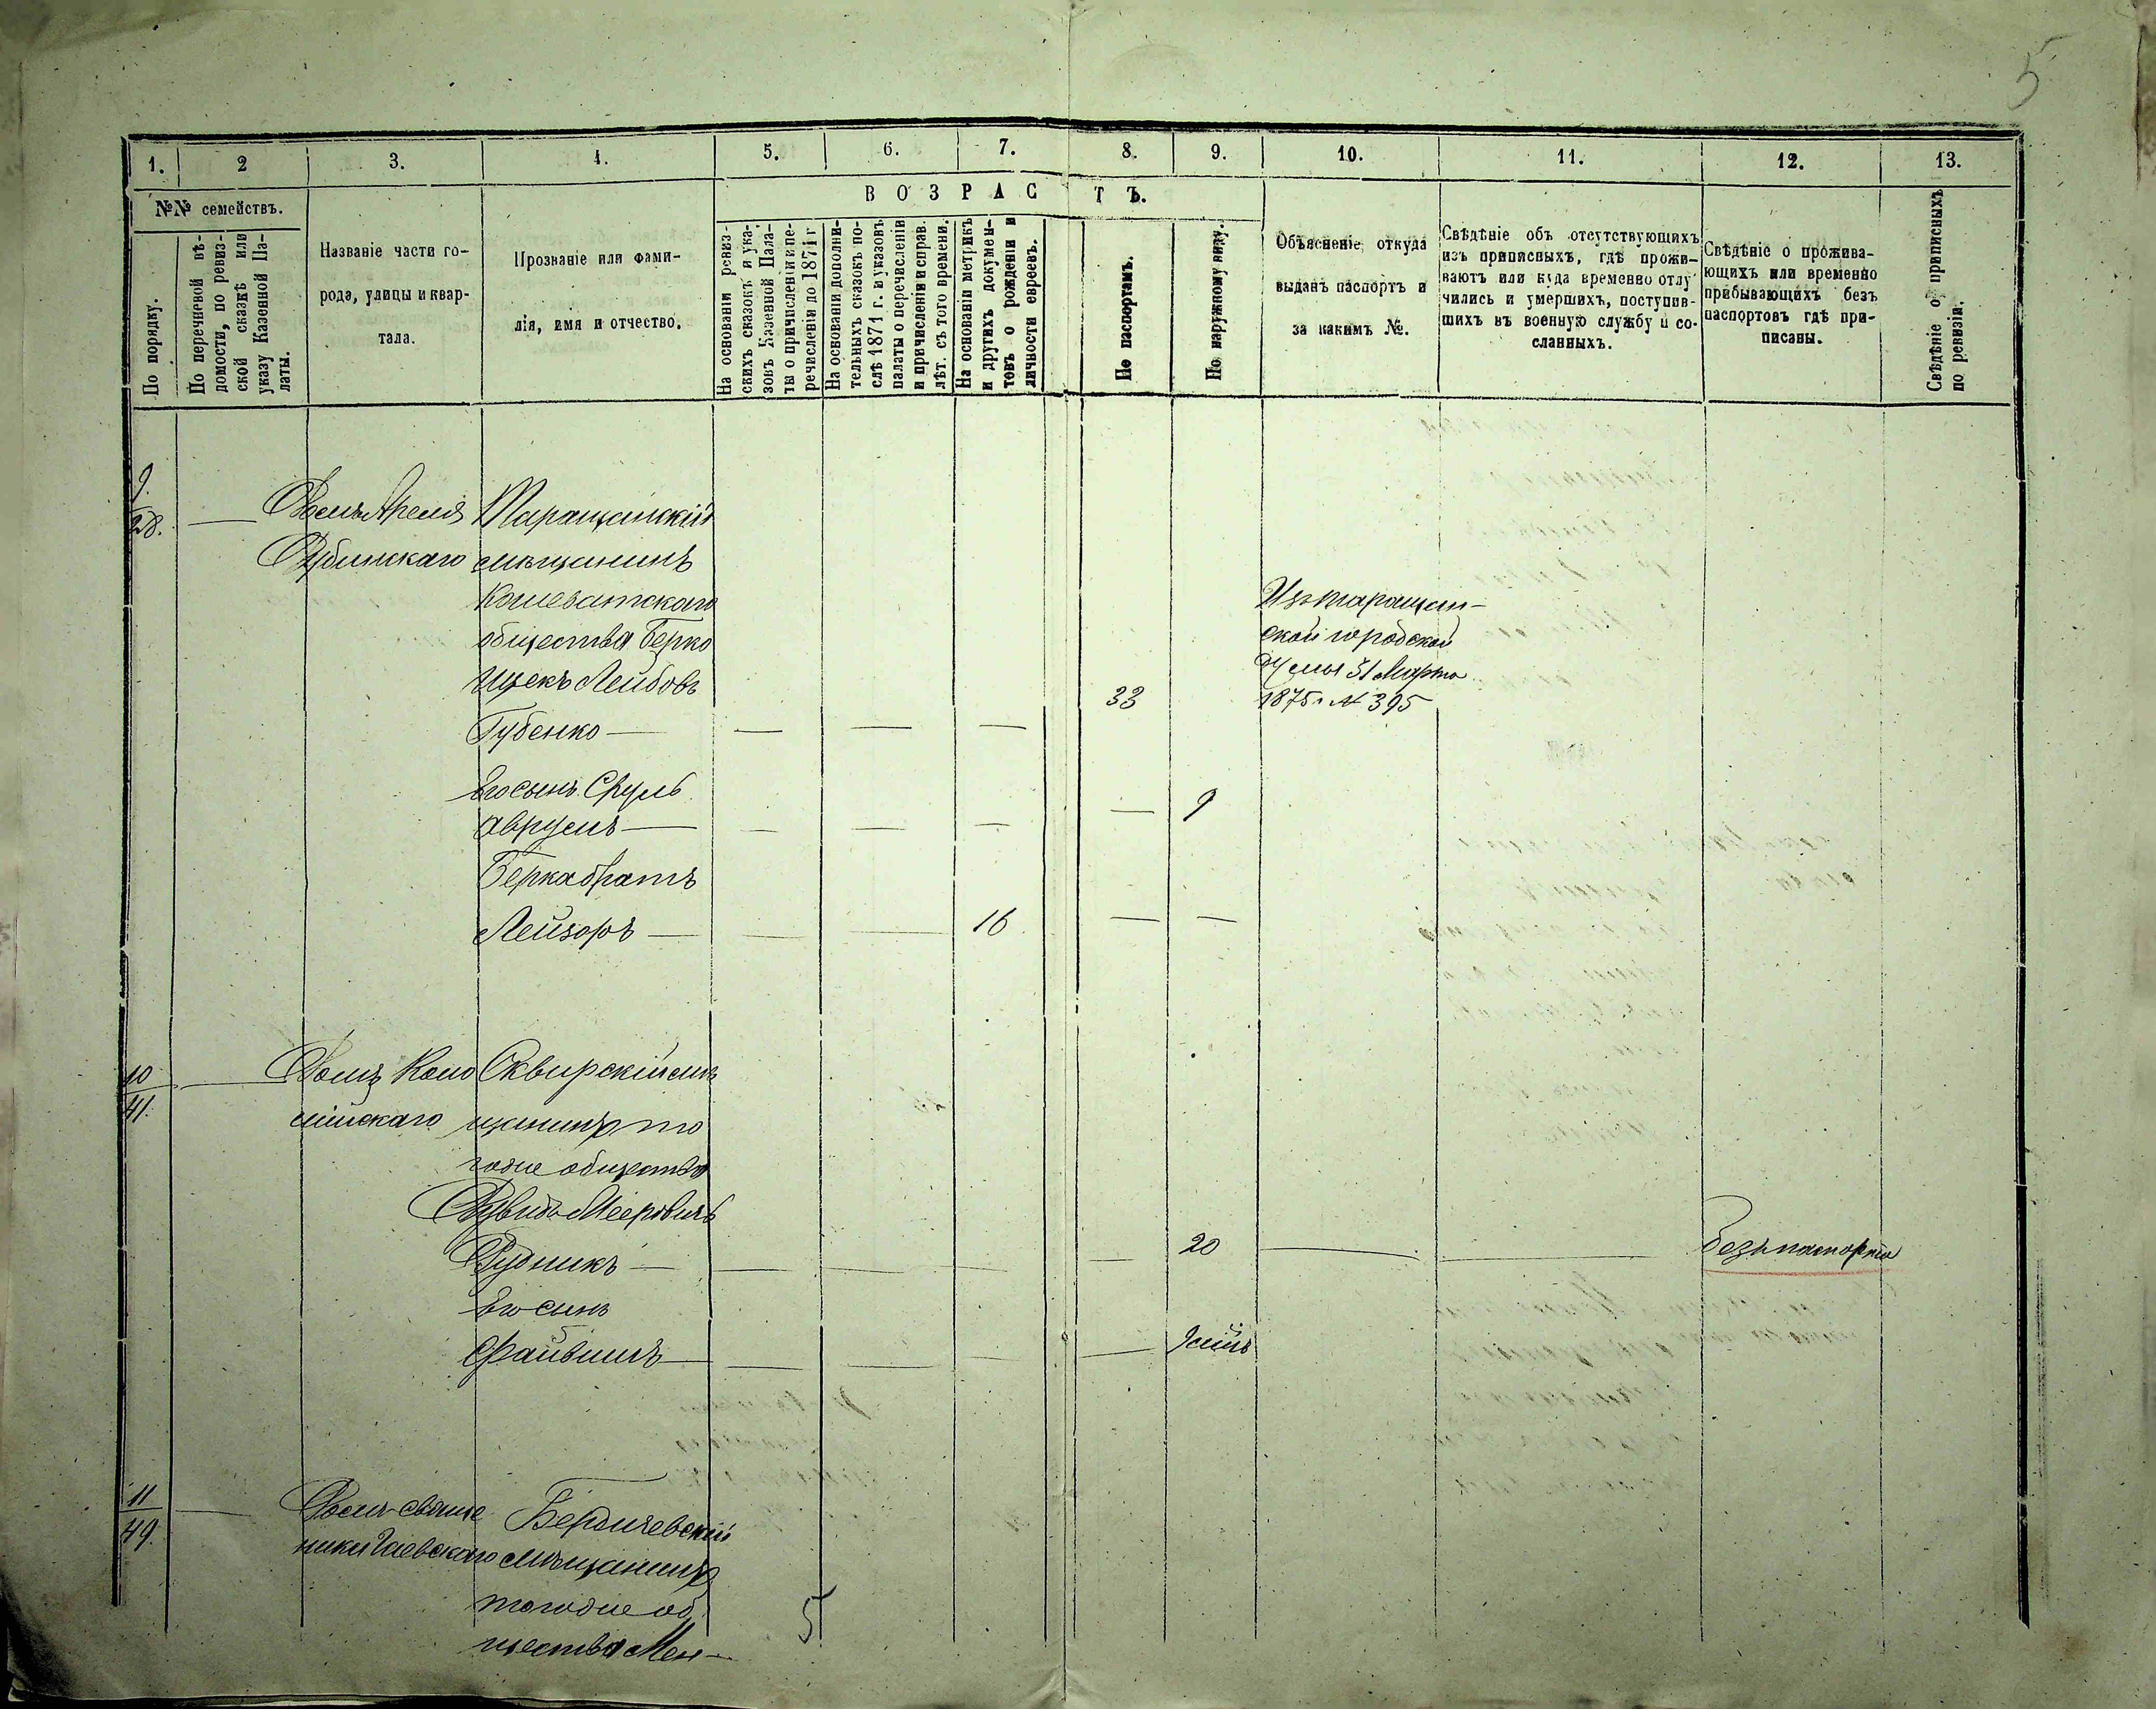 5
1.
2
3.
4.
5.
6.
7.
8.
9.
10.
11.
12.
13.
№№ семействъ.
По порядку.
По перечневой вѣ-
домости, по ревиз-
ской сказкѣ или
указу Казенной Па-
латы.
Названіе части го-
рода, улицы и квар-
тала.
Прозваніе или фами-
лія, имя и отчество.
ВОЗРАСТЪ.
На основаніи ревиз-
скихъ сказокъ и ука-
зовъ Казенной Пала-
ты о причисленіи и пе-
речисленія до 1871 г
На основаніи дополни-
тельныхъ сказокъ по-
слѣ 1871 г. и указовъ
палаты о перечисленіи
и причисленіи и справ.
лѣт. съ того времени.
На основаніи метрикъ
и другихъ докумен-
товъ о рожденіи и
личности евреевъ.
По паспортамъ.
По наружному виду.
Объясненіе откуда
выданъ паспортъ и
за какимъ №.
Свѣдѣніе объ отсутствующихъ
изъ приписныхъ, гдѣ прожи-
ваютъ или куда временно отлу
чились и умершихъ, поступив-
шихъ въ военную службу и со-
сланныхъ.
Свѣдѣніе о прожива-
ющихъ или временно
прибывающихъ безъ
паспортовъ гдѣ при-
писаны.
Свѣдѣніе о приписныхъ
по ревизіи.
9.
28.
Домъ
Дубинскаго
Таращанскій
мѣщанинъ
Кошеватскаго
общества Берко
Ицекъ Лейбовъ
Губенко —
33
Изъ таращан-
ской городской
думы 31 Марта
1875 г № 395
Его сынъ Сруль
Аврумъ —
9
Берка братъ
Лейзоръ —
16
10
41.
Домъ Коло
мійскаго
Сквирскій мѣ
щанинъ то
гоже общества
Дувидъ Мееровичъ
Рудникъ —
20
безъ паспорта
Его сынъ
Файвишъ —
11
49.
Домъ свяще
ника
Бердичевскій
мѣщанинъ
тогоже об
щества Мен-
5